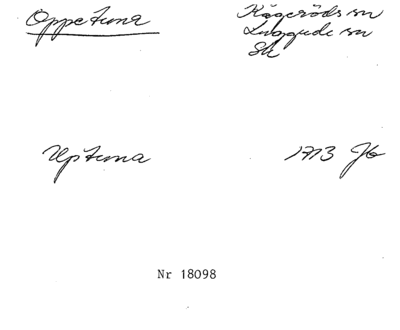 Oppetuna
Kågeröds sn
Luggude sn
Sk
Uptuna
1713 Jb
Nr 18098